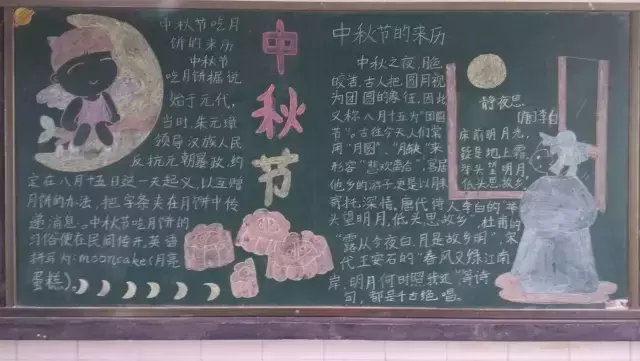 中秋节吃月
饼的来历
中秋节
吃月饼据说
始于元代，
当时，朱元璋
领导汉族人民
反抗元朝暴政，约
定在八月十五日这一天起义，以互赠
月饼的办法，把字条夹在月饼中传
递消息。中秋节吃月饼的
习俗便在民间传开，英语
拼写为：mooncake（月亮
蛋糕）。
中
秋
节
中秋节的来历
中秋之夜，月色
皎洁，古人把圆月视
为团圆的象征，因此
又称八月十五为“团圆
节”。古往今天人们常
用“月圆”、“月缺”来
形容“悲欢离合”，客居
他乡的游子更是以月来
寄托深情。唐代诗人李白的“举
头望明月，低头思故乡”，杜甫的
“露从今夜白，月是故乡明”，宋
代王安石的“春风又绿江南
岸，明月何时照我还”等诗
句，都是千古绝唱。
静夜思
[唐]李白
床前明月光，
疑是地上霜。
举头望明月，
低头思故乡。